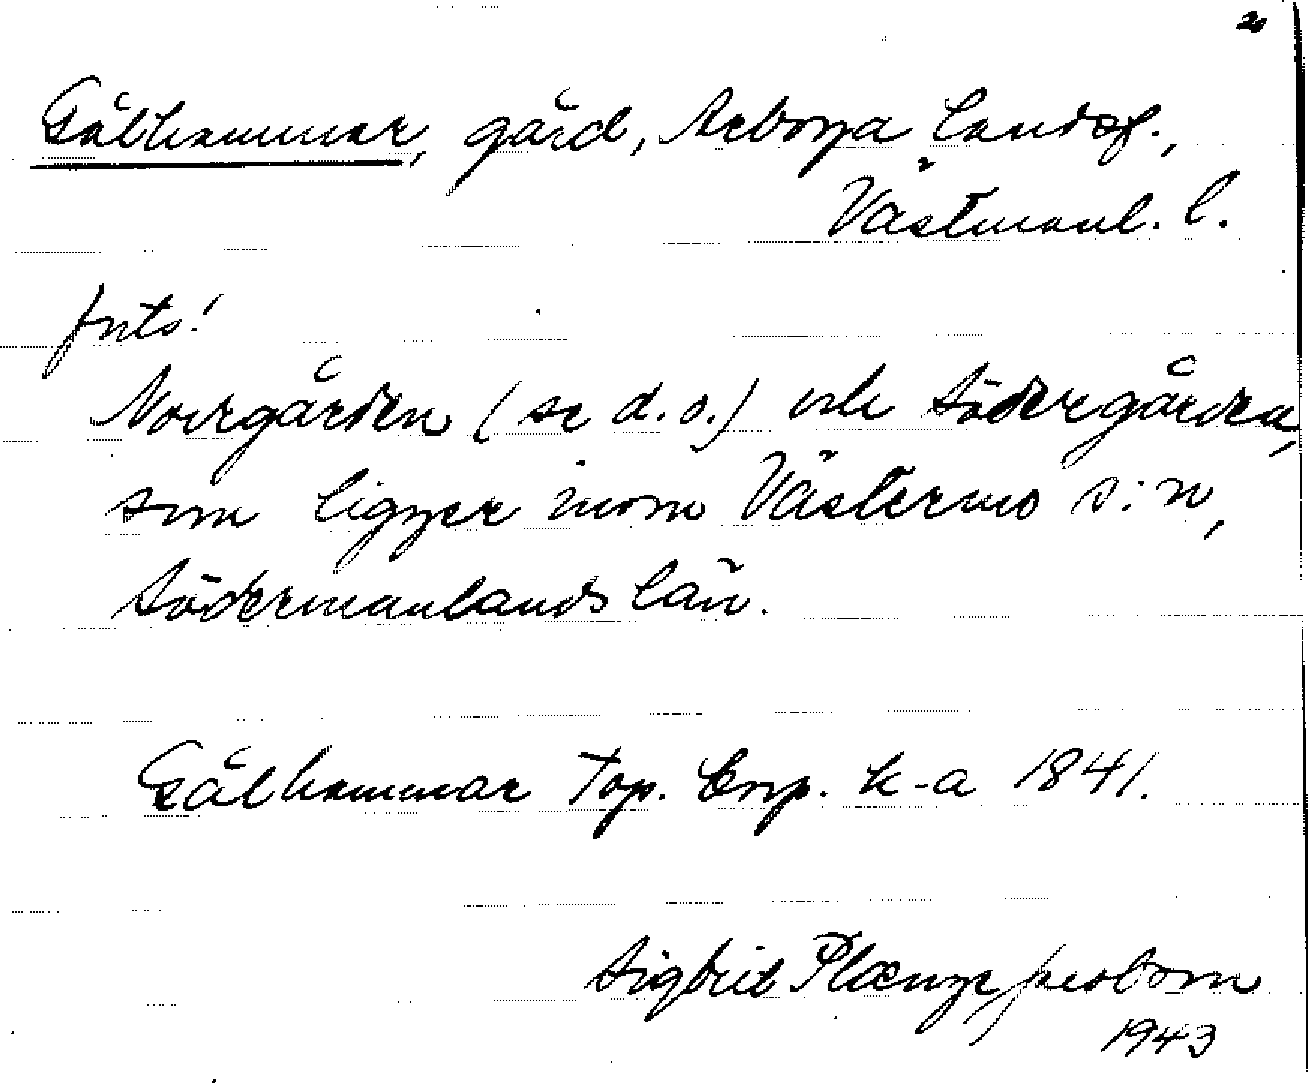 2
Gålhammar, gård, Arboga landsf.,
Västmanl. l.
frts!
Norrgården (se d. o.) och Södergården,
som ligger inom Västermo s:n,
Södermanlands län.
Gålhammar Top. Corp. k-a 1841.
Sigbrit Plænge Jacobson
1943